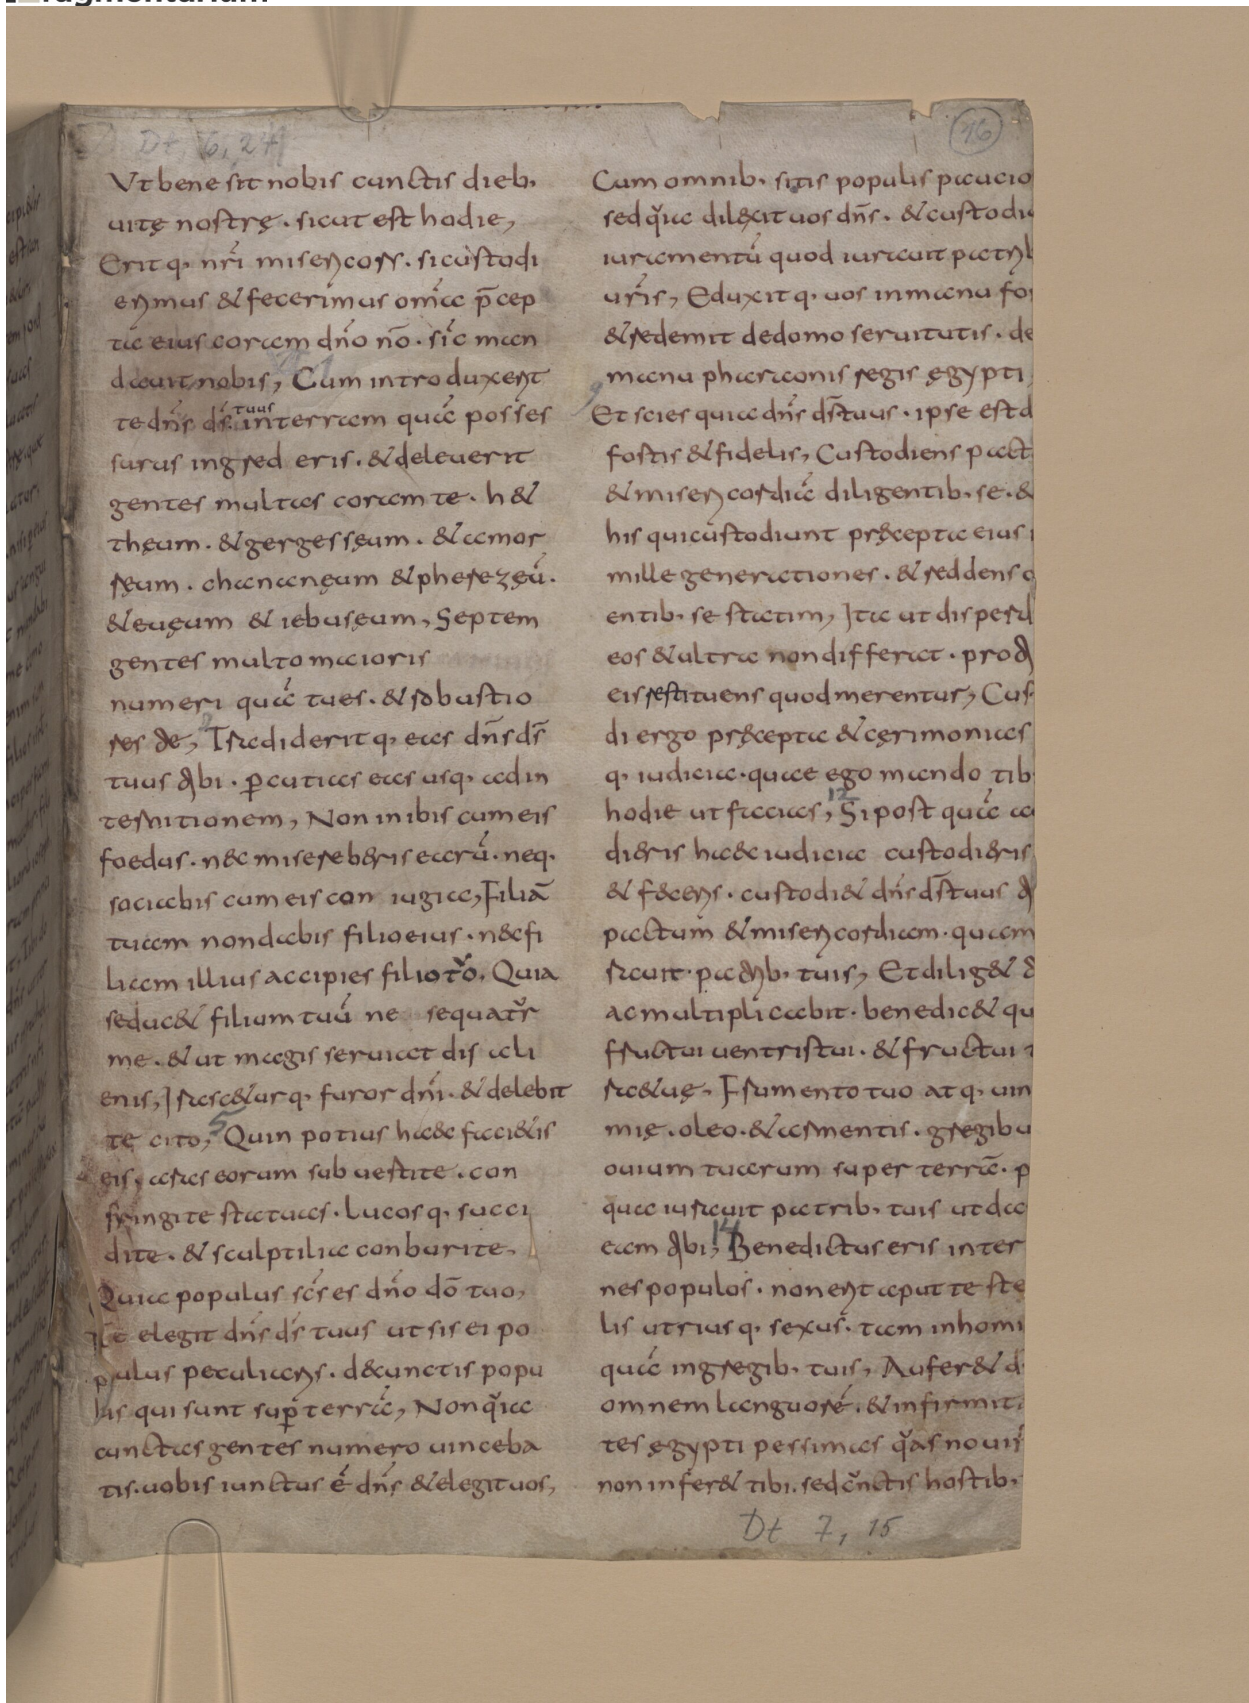 Dt, 6, 24
16
Vt bene sit nobis cunctis dieb·
uitę nostrę · sicut est hodie,
Erit q· nr̄i misericors · si custodi
erimus & fecerimus om̄ia p̄cep
ta eius coram dn̄o nō · sīc man
dauit nobis, Cum introduxerit
te dn̄s ds̄ tuus in terram quā posses
surus ingred eris · & deleuerit
gentes multas coram te · h&
theum · & gergesseum · & amor
reum · chananeum & pherezeū ·
& eueum & iebuseum, Septem
gentes multo maioris
numeri quā tu es · & robustio
res te, Tradiderit q· eas dn̄s ds̄
tuus tibi · p̄cuties eas usq· ad in
ternitionem, Non inibis cum eis
foedus · nec misereberis earū · neq·
sociabis cum eis con iugia, Filiā
tuam non dabis filio eius · nec fi
liam illius accipies filio t̆o, Quia
seduc& filium tuū ne sequat̆r
me · & ut magis seruiat dis ali
enis, Irasc&ur q· furor dn̄i · & delebit
te cito, 5 Quin potius haec faci&is
eis, aras eorum subuertite · con
fringite statuas · Lucos q· succi
dite · & sculptilia conburite,
Quia populus sc̄s es dn̄o dō tuo,
Te elegit dn̄s ds̄ tuus ut sis ei po
pulus peculiaris · de cunctis popu
lis qui sunt sup̄ terrā, Non q̆ia
cunctas gentes numero uinceba
tis · uobis iunctus ē dn̄s & elegit uos,
Cum omnib· sitis populis paucio
sed q̆ia dilexit uos dn̄s · & custodi
iuramentū quod iurauit patrib
ur̄is, Eduxit q· uos in manu for
& redemit de domo seruitutis · de
manu pharaonis regis ęgypti,
9 Et scies quia dn̄s ds̄ tuus · ipse est d
fortis & fidelis, Custodiens pact
& misericordiā diligentib· se · &
his qui custodiunt pręcepta eius
mille generationes · & reddens o
entib· se statim, Ita ut disperd
eos & ultra non differat · prot
eis restituens quod merentur, Cus
di ergo pręcepta & cęrimonias
q· iudicia · quae ego mando tib
hodie ut facias, 12 Si post quā au
dieris haec iudicia custodieris
& feceris · custodi& dn̄s ds̄ tuus t
pactum & misericordiam · quam
rauit · patrib· tuis, Et dilig& t
ac multiplicabit · benedic& qu
fructui uentris tui · & fructui t
rae tuę, Frumento tuo atq· uin
mię · oleo · & armentis · gregibu
ouium tuarum super terrā · p
qua iurauit patrib· tuis ut da
eam tibi, 14 Benedictus eris inter
nes populos · non erit aput te ste
lis utrius q· sexus · tam in homi
quā in gregib· tuis, Aufer& d
omnem languorē · & infirmita
tes ęgypti pessimas q̆as nouis
non infer& tibi · sed c̆nctis hostib·
Dt 7, 15